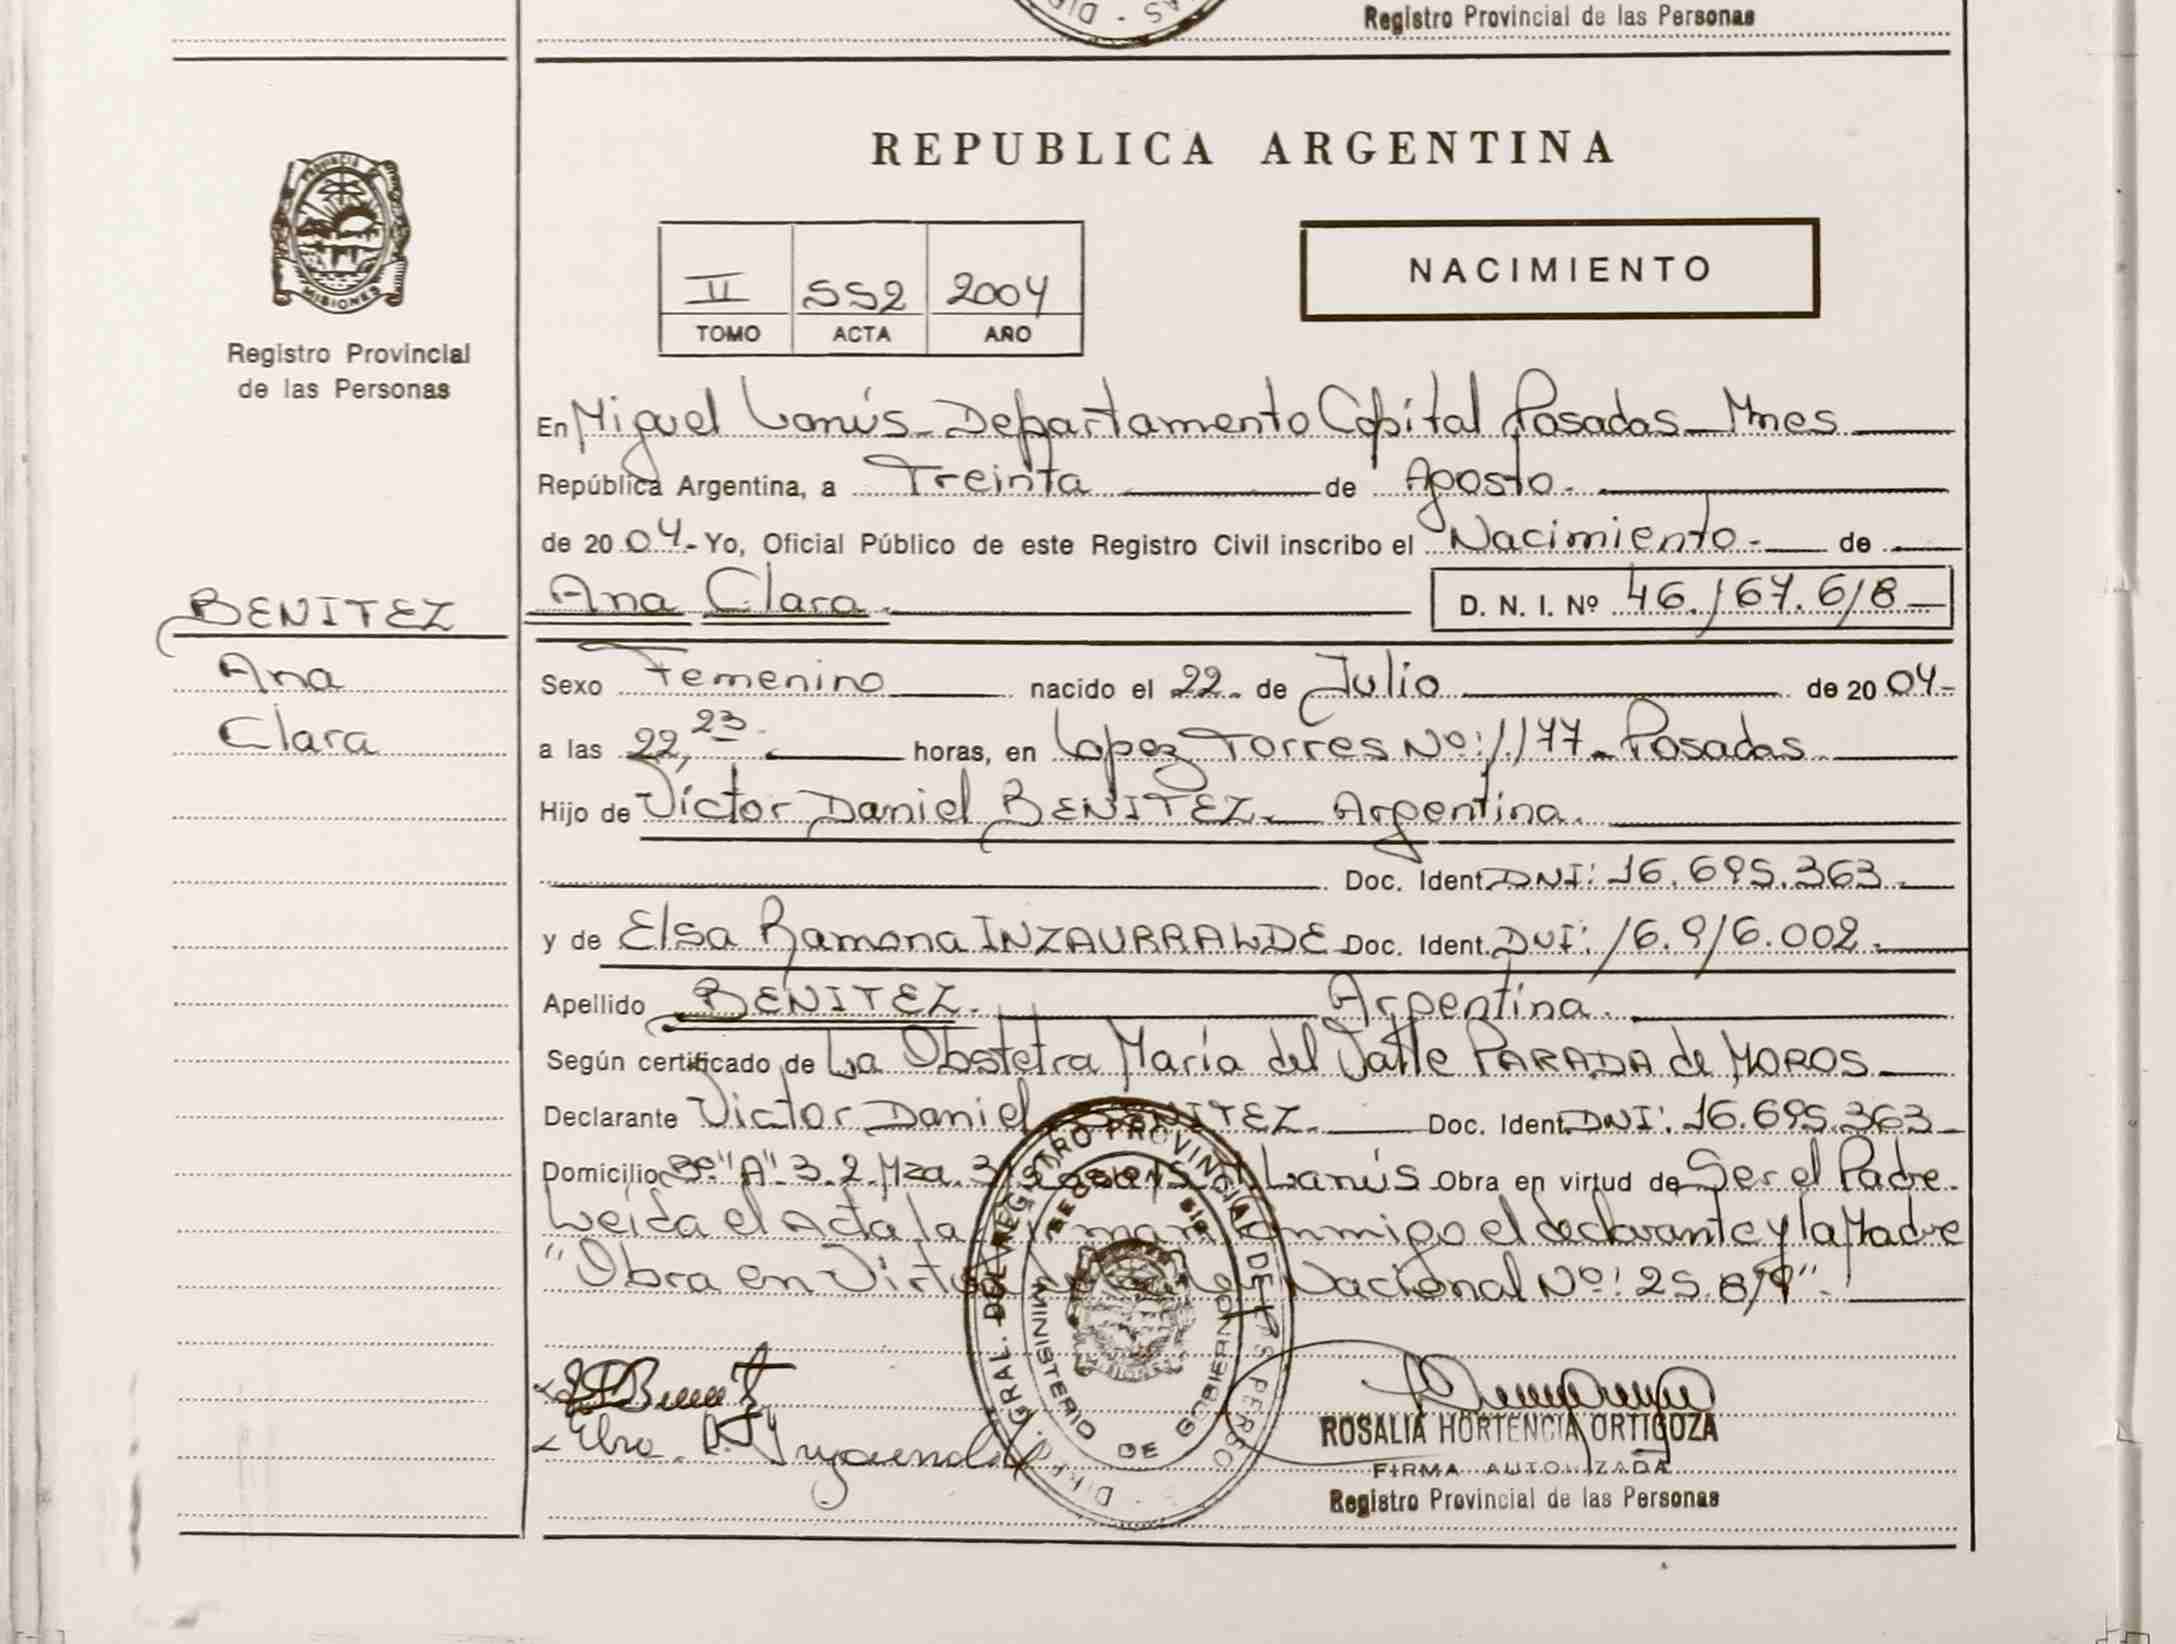 Registro Provincial de las Personas
REPUBLICA ARGENTINA
PROVINCIA DE
MISIONES
Registro Provincial
de las Personas
II 552 2004
TOMO ACTA AÑO
NACIMIENTO
En Miguel Lanús - Departamento Capital Posadas - Mnes
República Argentina, a Treinta de Agosto.
de 20 04.- Yo, Oficial Público de este Registro Civil inscribo el Nacimiento.- de
BENITEZ
Ana Clara.
D. N. I. Nº 46.167.618
Ana
Clara
Sexo Femenino nacido el 22. de Julio de 20 04-
a las 22,23. horas, en Lopez Torres Nº: 1.177 - Posadas
Hijo de Víctor Daniel BENITEZ. Argentina.
Doc. Ident. DNI: 16.695.363.
y de Elsa Ramona INZAURRALDE Doc. Ident. DNI: 16.916.002.
Apellido BENITEZ. Argentina.
Según certificado de La Obstetra María del Valle PARADA de MOROS
Declarante Victor Daniel BENITEZ. Doc. Ident. DNI: 16.695.363
Domicilio Bº "A" 3.2. Mza. Lanús Obra en virtud de Ser el Padre.
Leida el Acta la conmigo el declarante y la Madre
"Obra en Virtud Nacional Nº: 25.819".
DIR. GRAL. DEL REGISTRO PROVINCIAL DE LAS PERSONAS
MINISTERIO DE GOBIERNO
ROSALIA HORTENCIA ORTIGOZA
FIRMA AUTORIZADA
Registro Provincial de las Personas